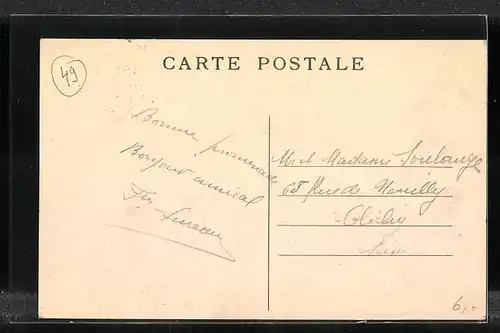 49
CARTE POSTALE
Bonne promenade
Bonjour amical
Mr et Madame Soulange
68 Rue de Neuilly
Clichy
Seine
6,-